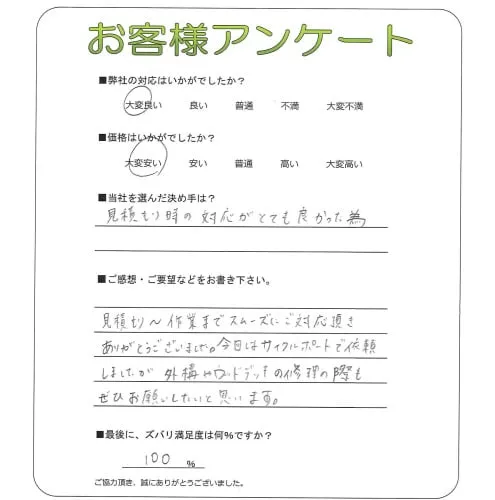 お客様アンケート
■弊社の対応はいかがでしたか？
大変良い　良い　普通　不満　大変不満
■価格はいかがでしたか？
大変安い　安い　普通　高い　大変高い
■当社を選んだ決め手は？
見積もり時の対応がとても良かった為
■ご感想・ご要望などをお書き下さい。
見積もり～作業までスムーズにご対応頂き
ありがとうございました。今回はサイクルポートで依頼
しましたが外構やウッドデッキの修理の際も
ぜひお願いしたいと思います。
■最後に、ズバリ満足度は何％ですか？
100 %
ご協力頂き、誠にありがとうございました。